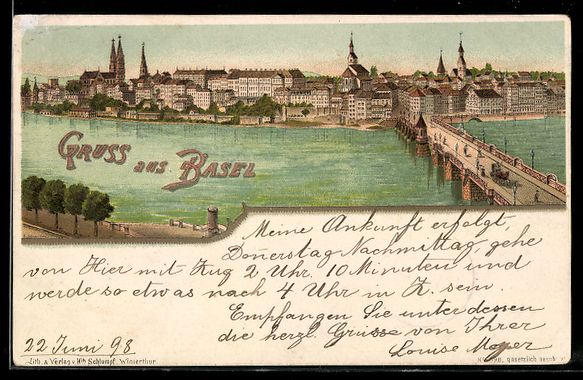 Gruss aus Basel
Meine Ankunft erfolgt,
Donerstag Nachmittag, gehe
von Hier mit Zug 2 Uhr 10 Minuten und
werde so etwas nach 4 Uhr in Z. sein.
Empfangen Sie unterdessen
die herzl. Grüsse von Ihrer
Louise Meyer
22 Juni 98
Lith. & Verlag v. Hch Schlumpf, Winterthur.
gesetzlich gesch